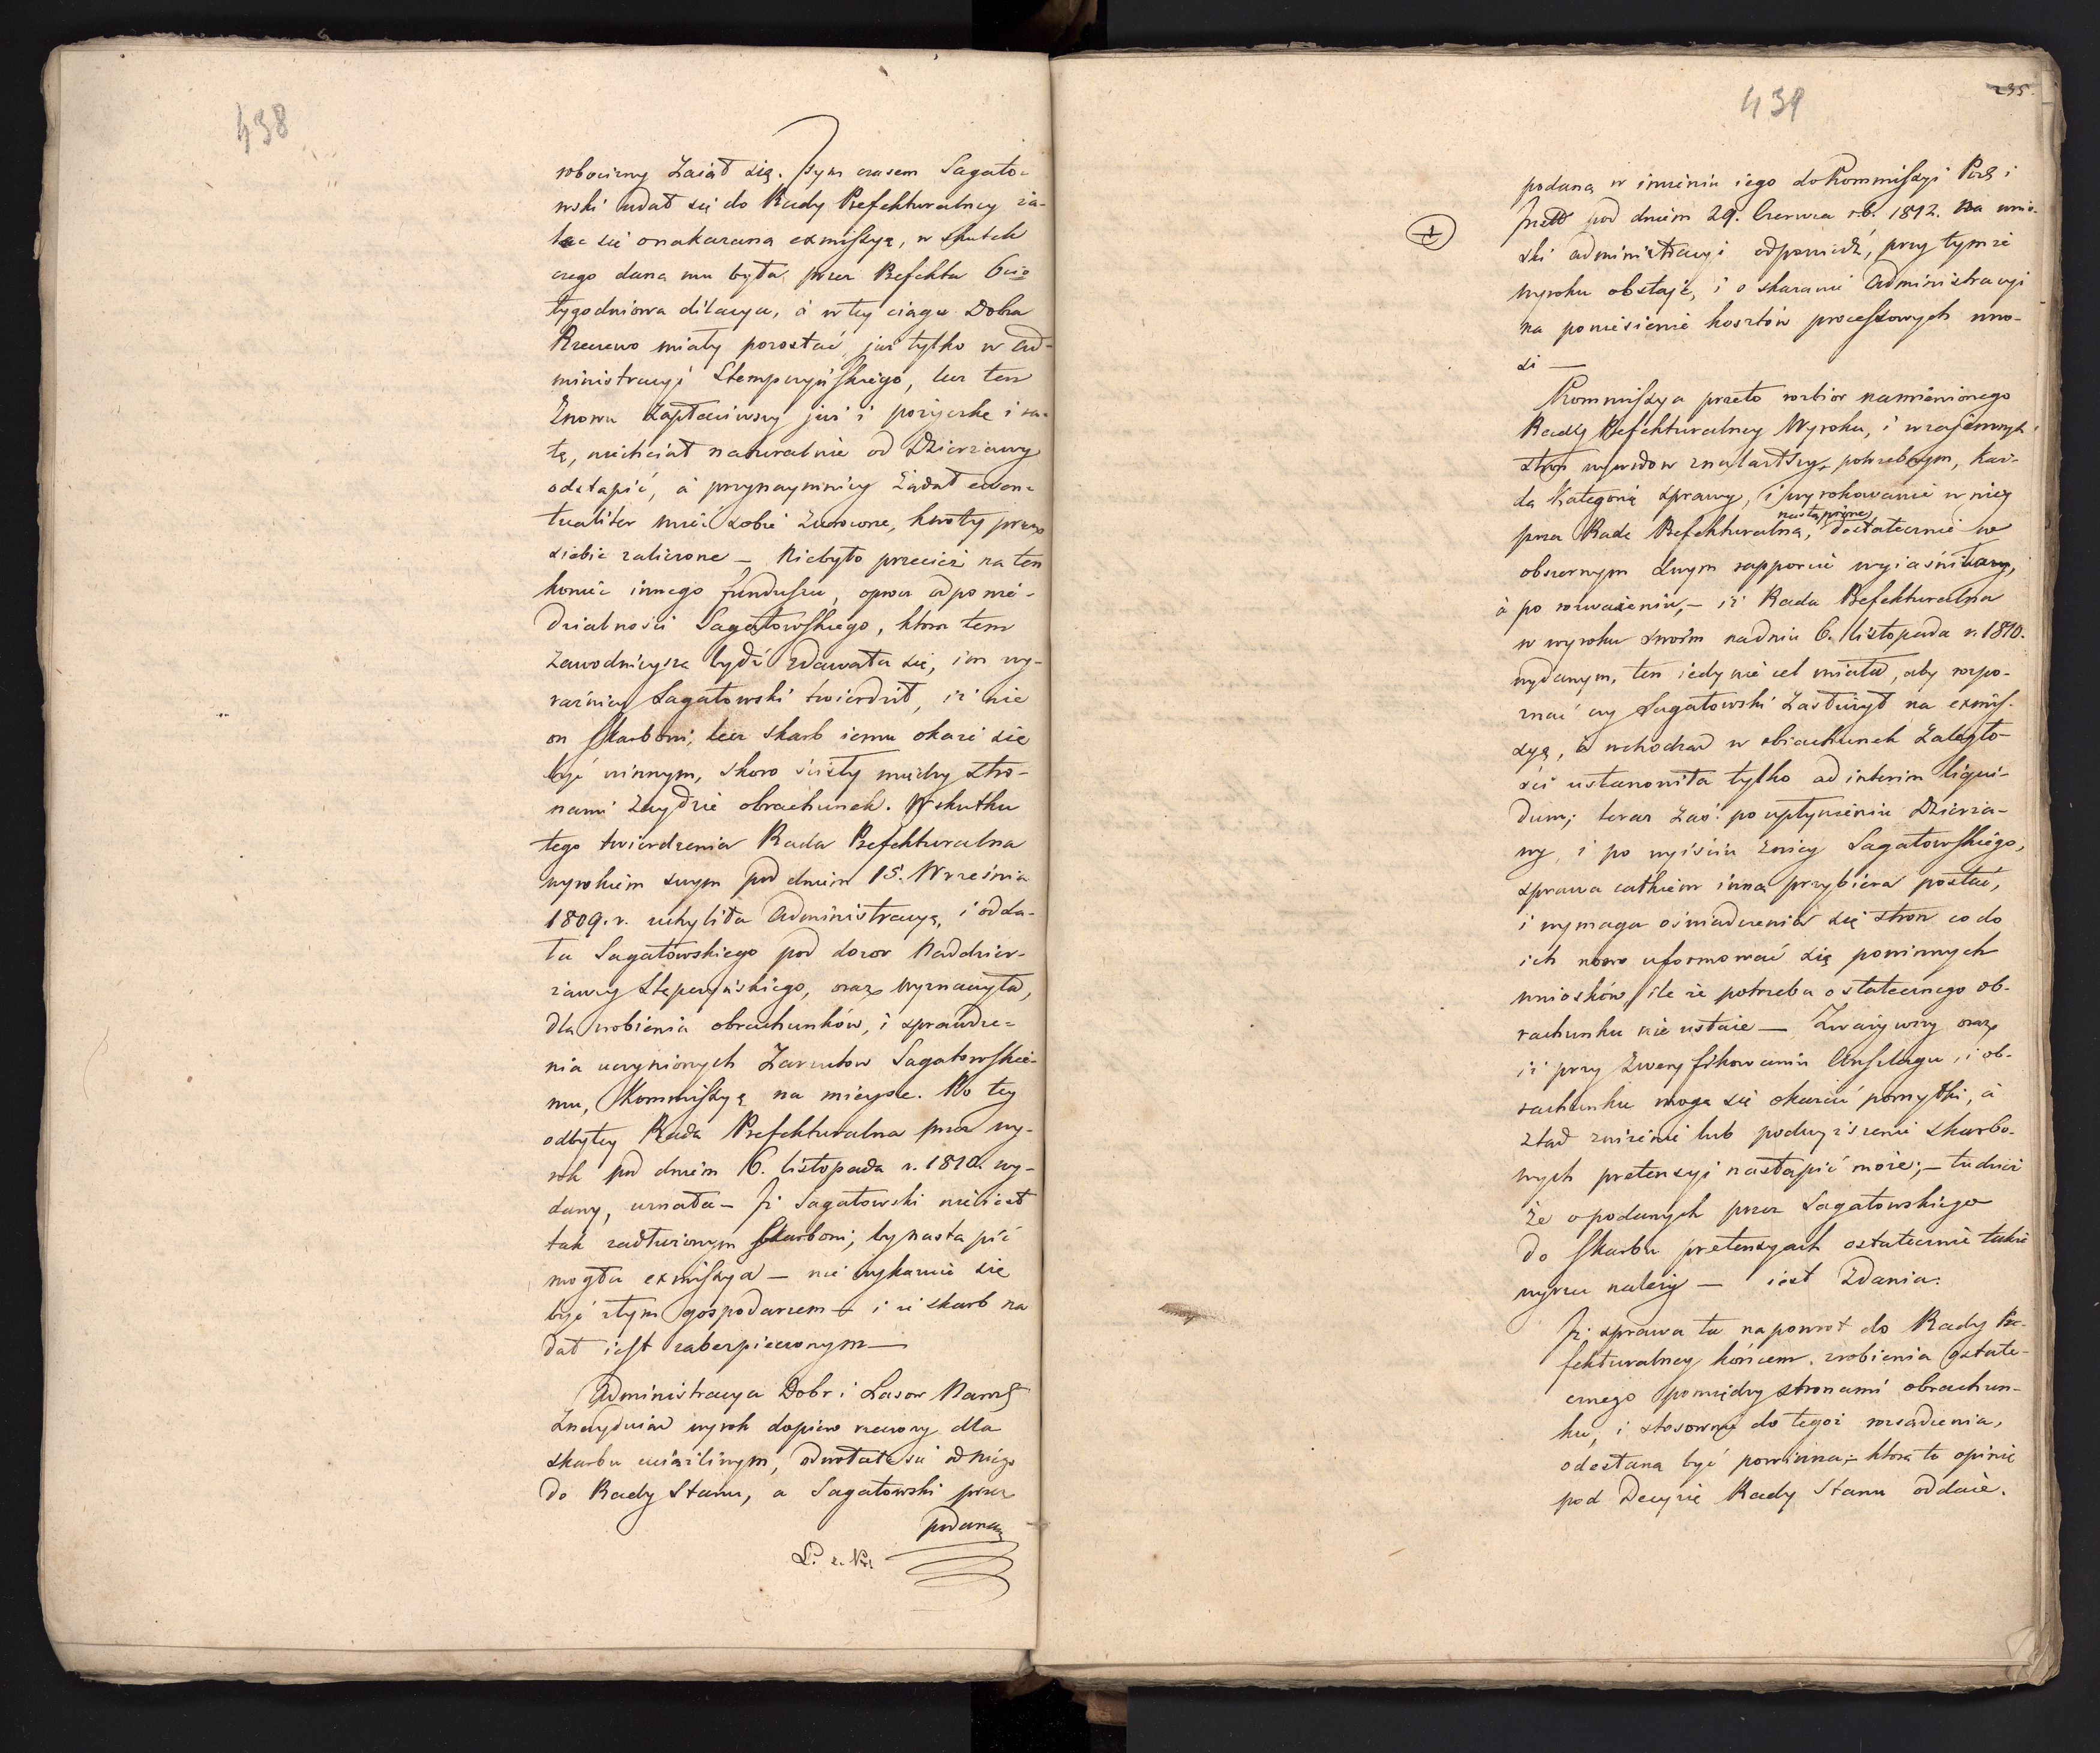 438
robocizny Zaiął się. Tym czasem Sagato-
wski udał się do Rady Prefekturalney ża-
ląc się onakazaną exmissyą, w skutek
czego dana mu była przez Prefekta 6cio
tygodniowa dilacya, à w tey ciągu Dobra
Rzeczewo miały pozostać już tylko w Ad-
ministracyi Stempczyńskiego, lecz ten
Znowu Zapłaciwszy już i pożyczkę i ra-
tę, niechciał naturalnie od Dzierzawy
odstąpić, à przynaymniey Żądał even-
tualiter mieć sobie Zwrócone, kwoty przez
siebie zaliczone — Niebyło przecież na ten
koniec innego funduszu, oprócz odpowie-
dzialności Sagatowskiego, która tem
Zawodnieysza bydź zdawała się, im wy-
raźniey Sagatowski twierdził, iż nie
on Skarbowi, lecz Skarb iemu okaże się
być winnym, skoro ścisły między Stro-
nami Zaydzie obrachunek. W skutku
tego twierdzenia Rada Prefekturalna
wyrokiem swym pod dniem 15. Września
1809. r. uchyliła Administracyą, i odda-
ła Sagatowskiego pod dozor Naddzier-
żawcy Stępczyńskiego, oraz wyznaczyła,
dla zrobienia obrachunków, i sprawdze-
nia uczynionych Zarzutow Sagatowskie-
mu, Kommissyą na mieysce. Po tey
odbytey Rada Prefekturalna przez wy-
rok pod dniem 6. listopada r. 1810. wy-
dany, uznała — Iż Sagatowski nieiest
tak zadłużonym Skarbowi, by nastąpić
mogła exmissya — nie wykazuie się
być złym gospodarzem — i że skarb na
dal iest zabezpieczonym —
Administracya Dobr i Lasow Narod
Znayduiąc wyrok dopiero rzeczony dla
skarbu uciążliwym, odwołała się od niego
do Rady Stanu, a Sagatowski przez
podaną
439
235.
podaną w imieniu iego do Kommissyi Poś i
Pod dniem 29. Czerwca r.b. 1812. na wnio-
ski administracyi odpowiedź, przy tymże
wyroku obstaje, i o skazanie Administracyi
na poniesienie kosztów processowych wno-
si —
Kommissya przeto rozbior namienionego
Rady Prefekturalney Wyroku, i wzajemnych
stron wywodow znalazłszy potrzebnym, każ-
da Kategorię sprawy, i wyrokowanie w niey
przez Radę Prefekturalną, nastąpione, dostatecznie we
obszernym swym rapporcie wyiaśniwszy,
à po rozważeniu, — iż Rada Prefekturalna
w wyroku swoim na dniu 6. listopada r. 1810.
wydanym, ten iedynie cel miała, aby rozpo-
znać czy Sagatowski Zasłużył na exmis-
syą, à wchodząc w obrachunek Zaległo-
ści ustanowiła tylko ad interim liqui-
dum; teraz Zaś po upłynieniu Dzierża-
wy, i po wyiściu Zniey Sagatowskiego,
sprawa całkiem inną przybiera postać,
i wymaga oświadczenia się stron co do
ich nowo uformować się powinnych
wniosków, ile że potrzeba ostatecznego ob-
rachunku nie ustaie — Zważywszy oraz
iż przy Zweryfikowaniu Anszlagu, i ob-
rachunku mogą się okazać pomyłki, à
ztąd zniżenie lub podwyższenie skarbo-
wych pretensyi nastąpić może; — tudzież
że o podanych przez Sagatowskiego
do Skarbu pretensyach ostatecznie także
wyrzec należy — iest Zdania:
Iż sprawa ta napowrot do Rady Pre-
fekturalney końcem zrobienia ostate-
cznego pomiędzy stronami obrachun-
ku, i stosownie do tegoż rozsądzenia,
odesłana być powinna; — którą to opinię
pod Decyzię Rady Stanu oddaie.